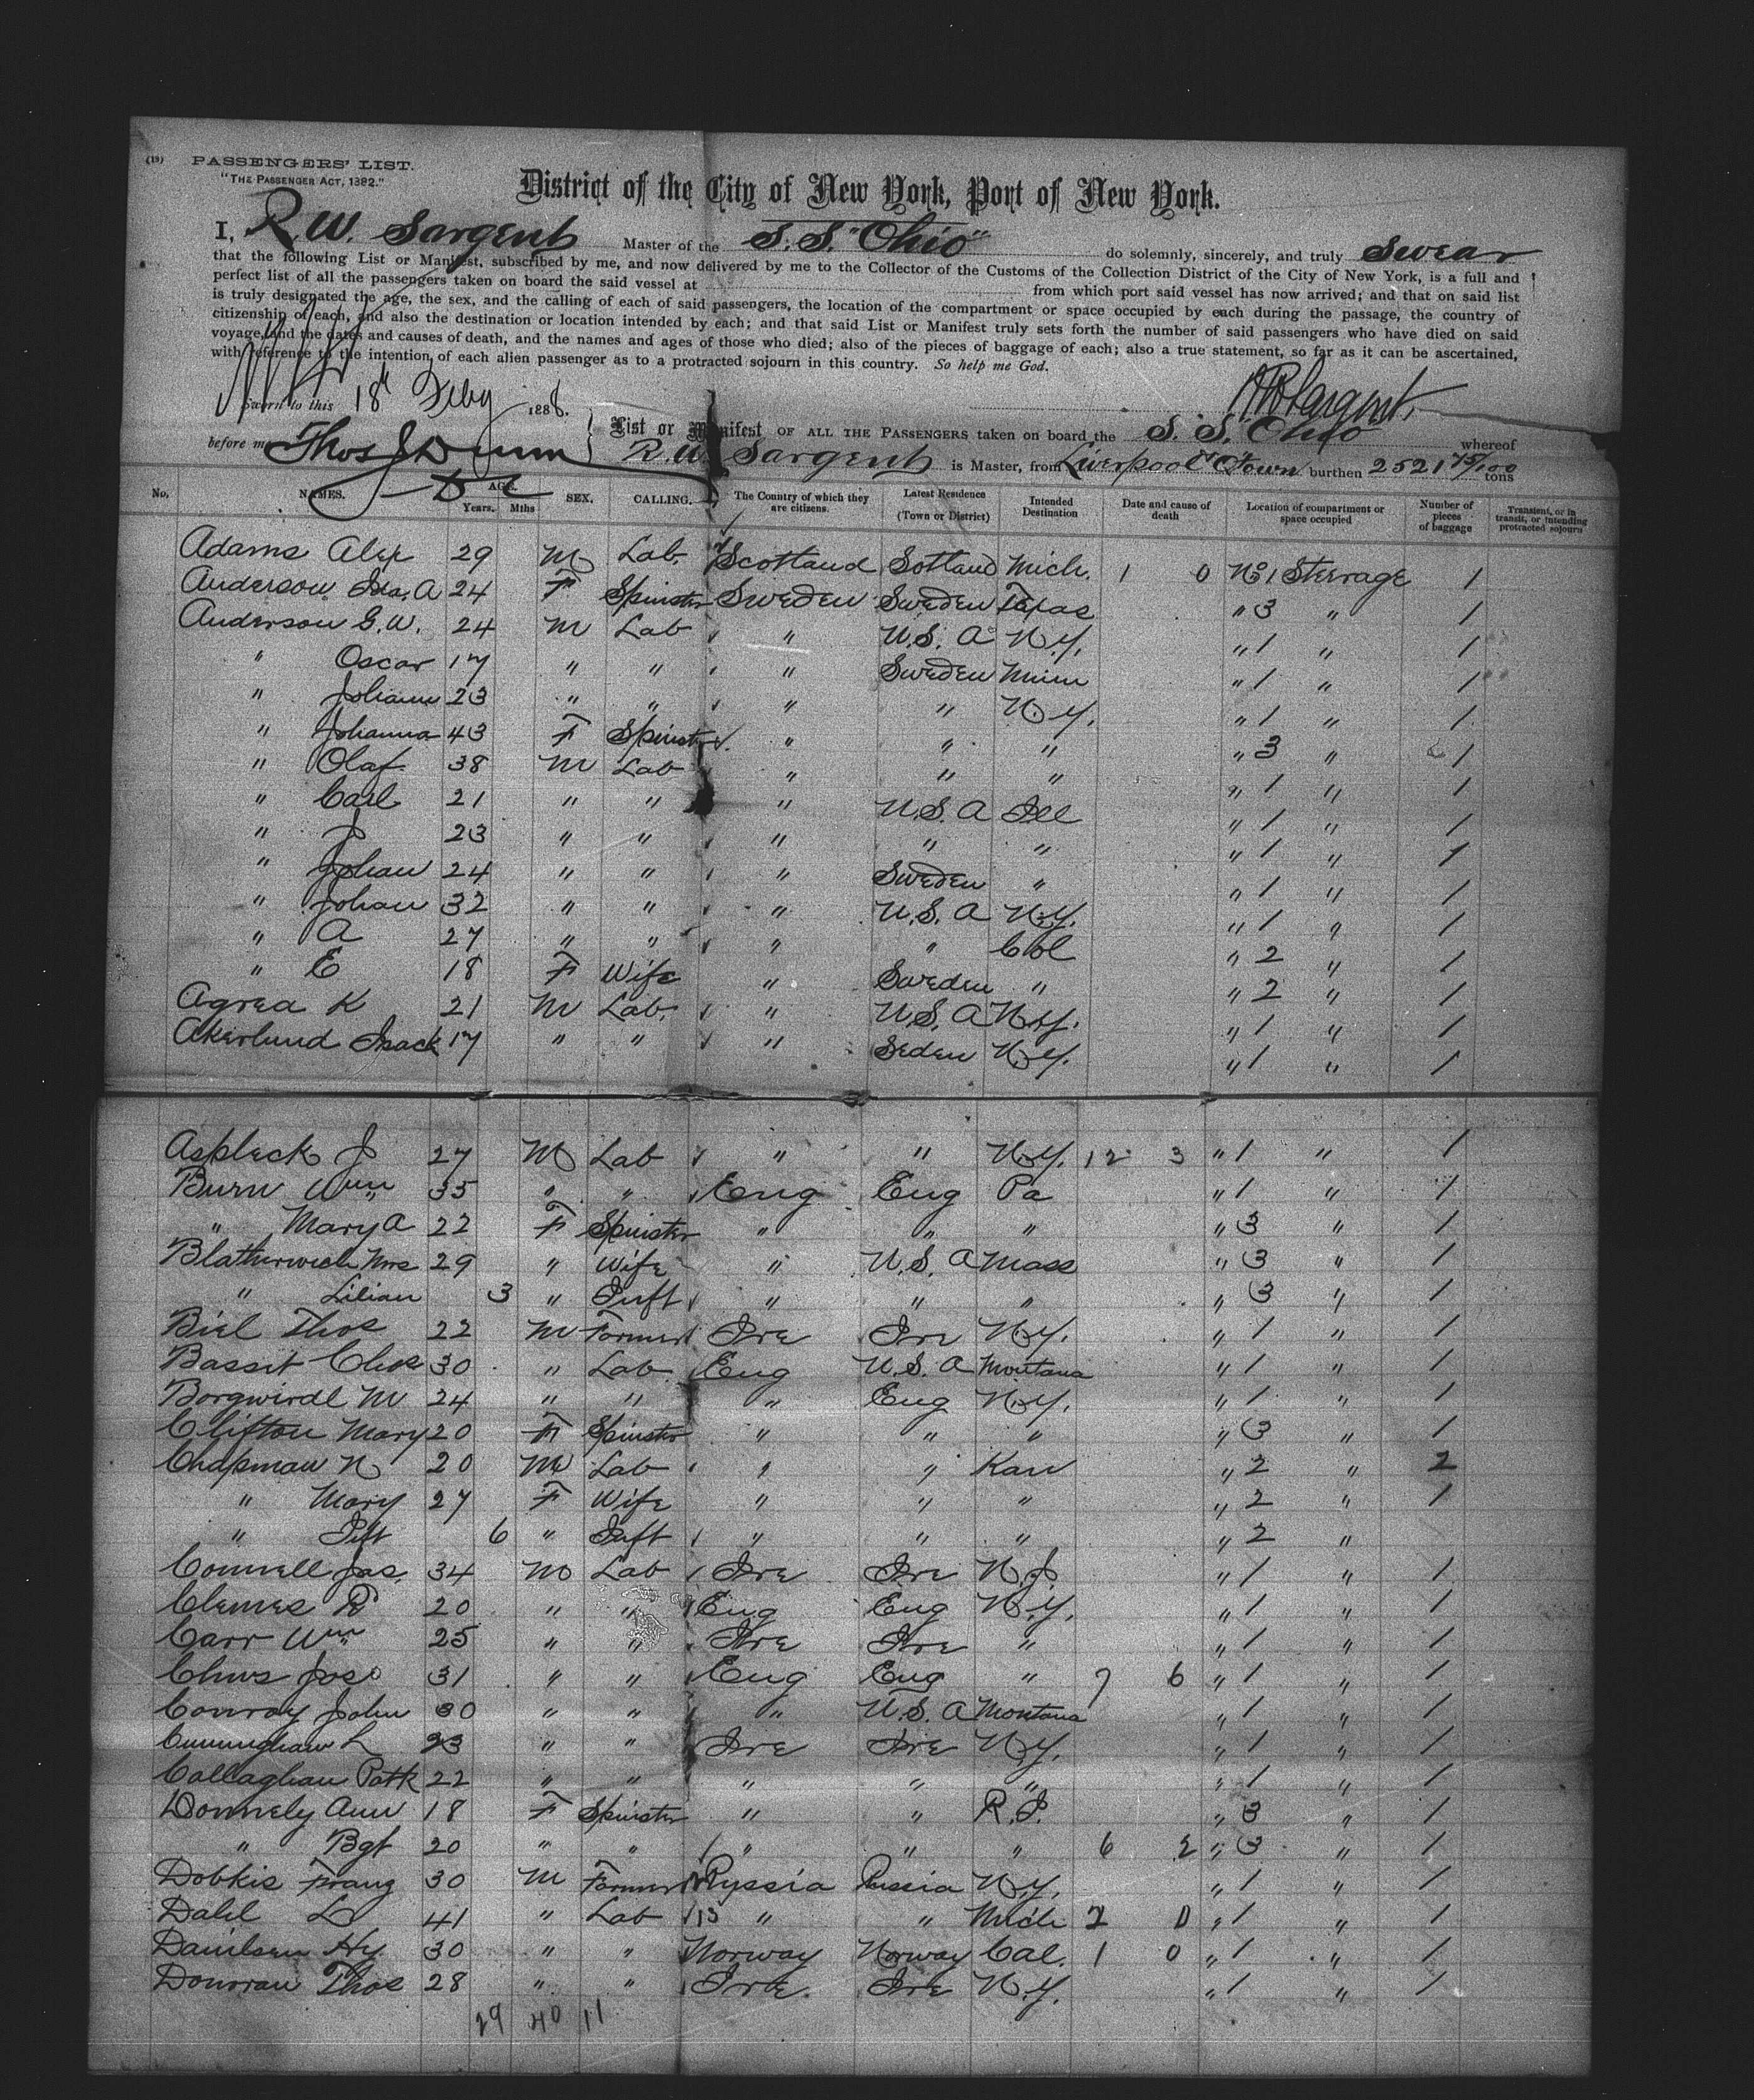 (13) PASSENGERS' LIST.
"THE PASSENGER ACT, 1882."
District of the City of New York, Port of New York.
I, R.W. Sargent Master of the S.S. "Ohio" do solemnly, sincerely, and truly Swear
that the following List or Manifest, subscribed by me, and now delivered by me to the Collector of the Customs of the Collection District of the City of New York, is a full and
perfect list of all the passengers taken on board the said vessel at from which port said vessel has now arrived; and that on said list
is truly designated the age, the sex, and the calling of each of said passengers, the location of the compartment or space occupied by each during the passage, the country of
citizenship of each, and also the destination or location intended by each; and that said List or Manifest truly sets forth the number of said passengers who have died on said
voyage, and the dates and causes of death, and the names and ages of those who died; also of the pieces of baggage of each; also a true statement, so far as it can be ascertained,
with reference to the intention of each alien passenger as to a protracted sojourn in this country. So help me God.
Sworn to this 18th Feby 1888. RWSargent.
before me Thos J Dunn
List or Manifest OF ALL THE PASSENGERS taken on board the S. S. Ohio whereof
R.W. Sargent is Master, from Liverpool & QTown burthen 2521 75/100 tons
No. NAMES. AGE. Years. Mths SEX. CALLING. The Country of which they are citizens. Latest Residence (Town or District) Intended Destination Date and cause of death Location of compartment or space occupied Number of pieces of baggage Transient, or in transit, or intending protracted sojourn
Adams Alex 29 M Lab. Scotland Sotland Mich. 1 0 No 1 Steerage 1
Anderson Ida. A 24 F Spinster Sweden Sweden Texas " 3 " 1
Anderson G.W. 24 M Lab " U.S. A N.Y. " 1 " 1
" Oscar 17 " " " Sweden Minn " 1 " 1
" Johann 23 " " " " N.Y. " 1 " 1
" Johanna 43 F Spinster " " " " 3 " 1
" Olaf 38 M Lab " " " " 1 " 1
" Carl 21 " " " U.S. A Ill " 1 " 1
" J 23 " " " " " " 1 " 1
" Johan 24 " " " Sweden " " 1 " 1
" Johan 32 " " " U.S. A N.Y. " 1 " 1
" A 27 " " " " Col " 2 " 1
" E 18 F Wife " Sweden " " 2 " 1
Agrea K 21 M Lab. " U.S. A N.Y. " 1 " 1
Akerlund Isack 17 " " " Seden N.Y. " 1 " 1
Aspleck J 27 M Lab " " N.Y. 12 3 " 1 " 1
Burn Wm 35 " " Eng Eng Pa " 1 " 1
" Mary A 22 F Spinster " " " " 3 " 1
Blatherwick Mrs 29 " Wife " U.S. A Mass " 3 " 1
" Lilian 3 " Inft " " " " 3 " 1
Biel Thos 22 M Farmer Ire Ire N.Y. " 1 " 1
Bassit Chas 30 " Lab Eng U.S. A Montana " 1 " 1
Borgwirdl M 24 " " " Eng N.Y. " 1 " 1
Clifton Mary 20 F Spinster " " " " 3 " 1
Chapman N 20 M Lab " " Kan " 2 " 2
" Mary 27 F Wife " " " " 2 " 1
" Ift 6 " Inft " " " " 2 "
Connell Jas. 34 M Lab Ire Ire N.J. " 1 " 1
Clemes R 20 " " Eng Eng N.Y. " 1 " 1
Carr Wm 25 " " Ire Ire " " 1 " 1
Chws Jos 31 " " Eng Eng " 7 6 " 1 " 1
Conroy John 30 " " " U.S. A Montana " 1 " 1
Cunningham L 23 " " Ire Ire N.Y. " 1 " 1
Callaghan Patk 22 " " " " " " 1 " 1
Donnely Ann 18 F Spinster " " R.I. " 3 " 1
" Bgt 20 " " " " " 6 2 " 3 " 1
Dobkis Franz 30 M Farmer Ryssia Russia N.Y. " 1 " 1
Dahl L 41 " Lab 13 " " Mich 2 0 " 1 " 1
Danilsen Hy. 30 " " Norway Norway Cal. 1 0 " 1 " 1
Donovan Thos 28 " " Ire Ire N.Y. " 1 " 1
29 40 11